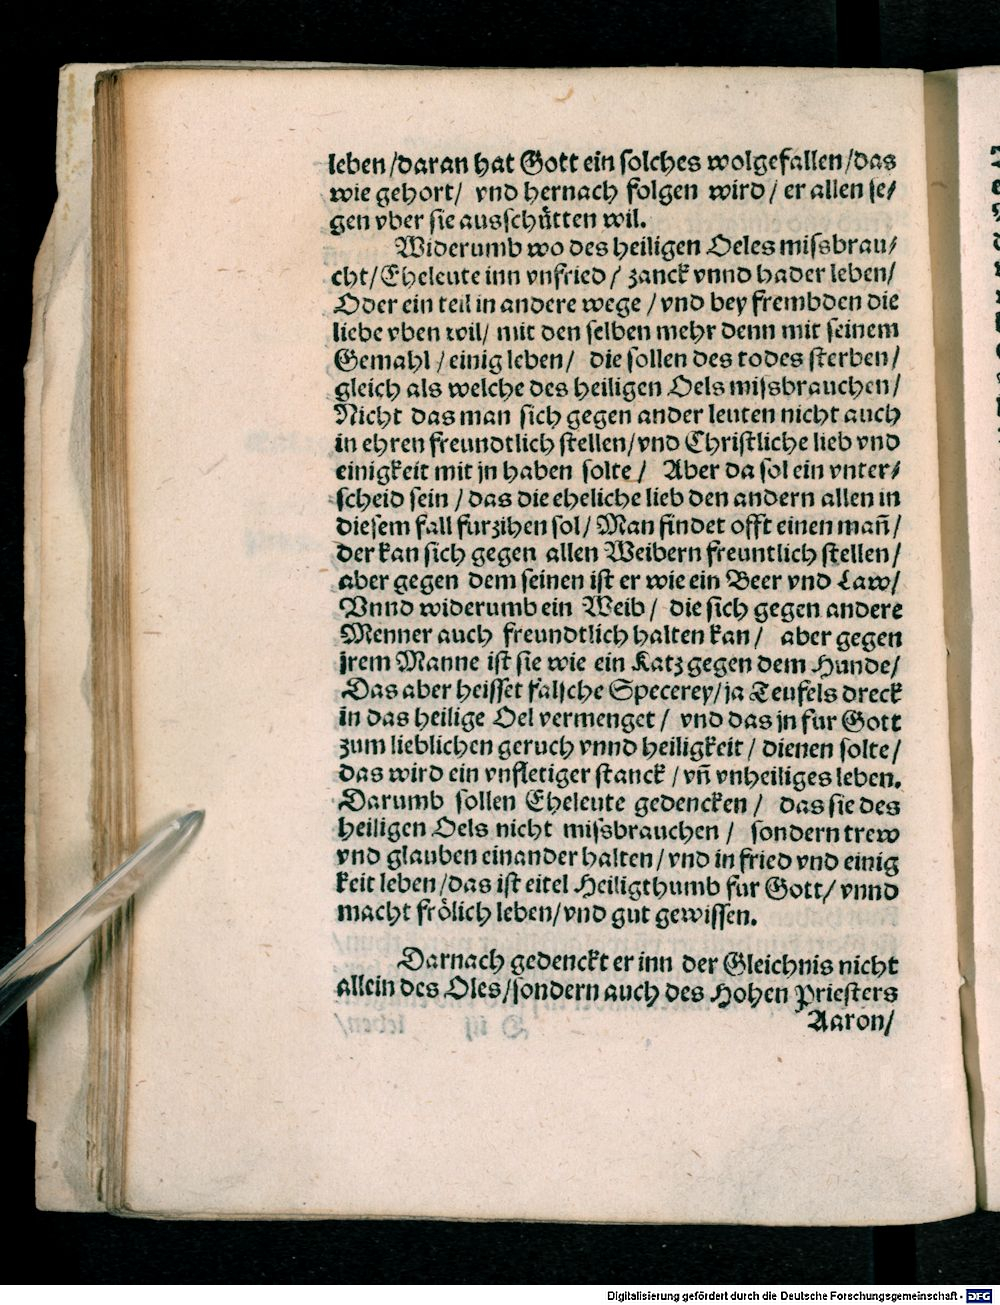 leben/daran hat Gott ein solches wolgefallen/das
wie gehort/ vnd hernach folgen wird/ er allen se⸗
gen vber sie ausschütten wil.
Widerumb wo des heiligen Oeles missbrau⸗
cht/Eheleute inn vnfried/ zanck vnnd hader leben/
Oder ein teil in andere wege/vnd bey frembden die
liebe vben wil/ mit den selben mehr denn mit seinem
Gemahl/einig leben/ die sollen des todes sterben/
gleich als welche des heiligen Oels missbrauchen/
Nicht das man sich gegen ander leuten nicht auch
in ehren freundtlich stellen/vnd Christliche lieb vnd
einigkeit mit jn haben solte/ Aber da sol ein vnter⸗
scheid sein/das die eheliche lieb den andern allen in
diesem fall furzihen sol/Man findet offt einen man̄/
der kan sich gegen allen Weibern freuntlich stellen/
aber gegen dem seinen ist er wie ein Beer vnd Law/
Vnnd widerumb ein Weib/ die sich gegen andere
Menner auch freundtlich halten kan/ aber gegen
jrem Manne ist sie wie ein Katz gegen dem Hunde/
Das aber heisset falsche Specerey/ja Teufels dreck
in das heilige Oel vermenget/ vnd das jn fur Gott
zum lieblichen geruch vnnd heiligkeit/ dienen solte/
das wird ein vnfletiger stanck/vn̄ vnheiliges leben.
Darumb sollen Eheleute gedencken/ das sie des
heiligen Oels nicht missbrauchen/ sondern trew
vnd glauben einander halten/vnd in fried vnd einig
keit leben/das ist eitel Heiligthumb fur Gott/ vnnd
macht frölich leben/vnd gut gewissen.
Darnach gedenckt er inn der Gleichnis nicht
allein des Oles/sondern auch des Hohen Priesters
Aaron/
Digitalisierung gefördert durch die Deutsche Forschungsgemeinschaft - DFG